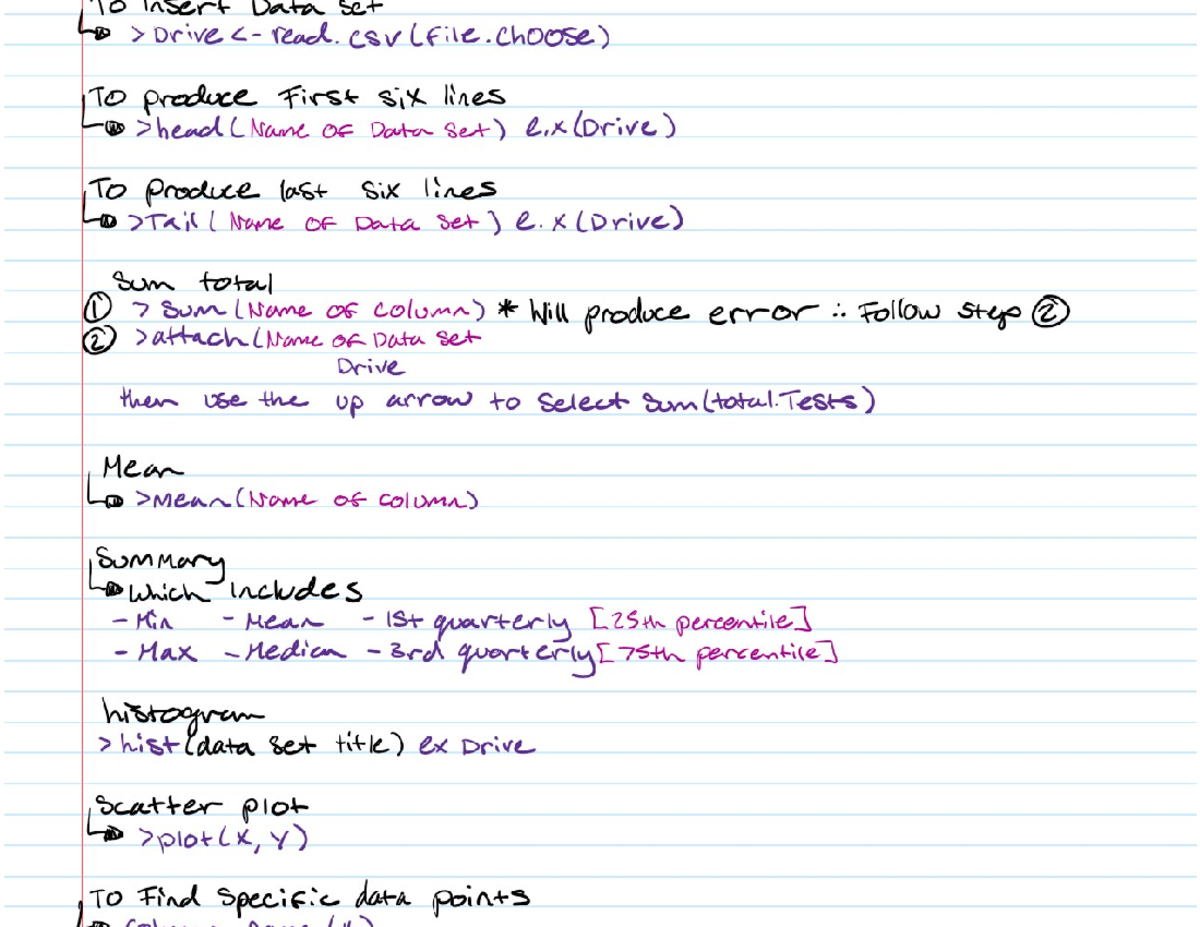 To Insert Data Set
> Drive <- read.csv(file.choose)
To produce First six lines
>head(Name of Data Set) e.x(Drive)
To Produce last six lines
>Tail(Name of Data Set) e.x(Drive)
Sum total
① > Sum(Name of Column) * Will produce error ∴ Follow Step ②
② >attach(Name of Data Set
Drive
then use the up arrow to Select Sum(total.Tests)
Mean
>Mean(Name of Column)
Summary
Which includes
- Min - Mean - 1st quarterly [25th percentile]
- Max - Median - 3rd quarterly [75th percentile]
histogram
> hist(data set title) ex Drive
Scatter plot
>plot(X, Y)
To Find Specific data points